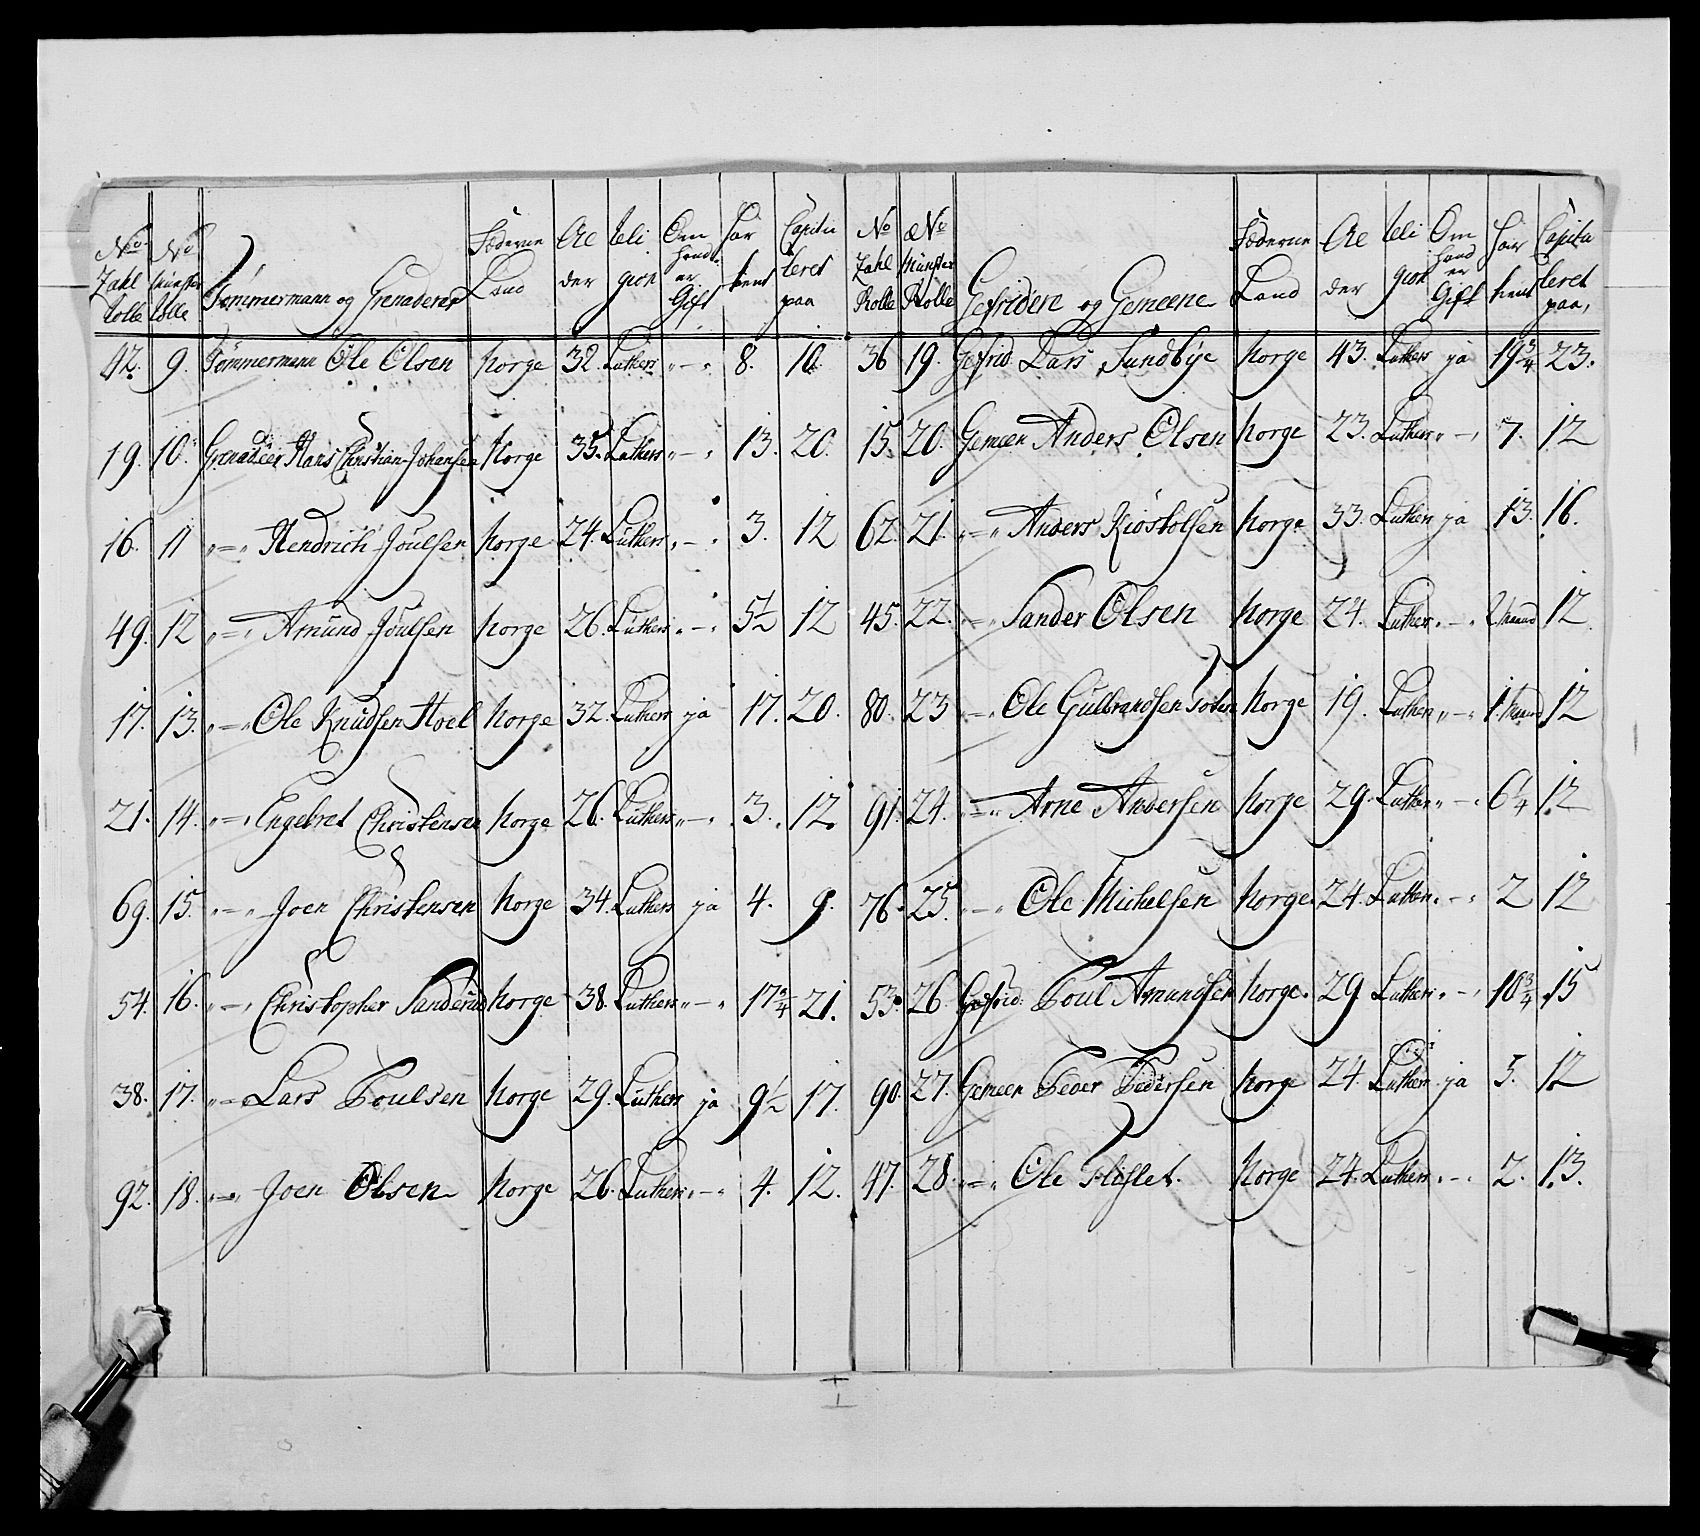 No Zahl Rolle | No Münster Rolle | Tömmermann og Grenaderer | Föderne Land | Alder | Religion | Om hand er Gift | Har tient | Capituleret paa
42. 9. Tömmermann Ole Olsen Norge 32. Luthers „—„ 8. 10.
19. 10. Grenadeer Hans Christian Johensen Norge 35. Luthers „—„ 13. 20.
16. 11 „=„ Hendrich Joulsen Norge 24. Luthers „—„ 3. 12
49. 12 „=„ Amund Joulsen Norge 26. Luthers „—„ 5½ 12
17. 13. „=„ Ole Knudsen Hoel Norge 32. Luthers ja 17. 20.
21. 14. „=„ Engebret Christensen Norge 26. Luthers „—„ 3. 12.
69. 15. „—„ Joen Christensen Norge 34. Luthers ja 4. 9.
54. 16. „—„ Christopher Sanderud Norge 38. Luthers „—„ 17¾ 21.
38. 17. „—„ Lars Poulsen Norge 29. Luthers ja 9½ 17.
92. 18. „—„ Joen Olsen Norge 26. Luthers „—„ 4. 12.
No Zahl Rolle | No Münster Rolle | Gefriden og Gemeene | Föderne Land | Alder | Religion | Om hand er Gift | Har tient | Capituleret paa,
36 19. Gefrid Lars Sundbye Norge 43. Luthers ja 19¾ 23.
15. 20. Gemeen Anders Olsen Norge 23. Luthers „—„ 7. 12
62. 21. „=„ Anders Kiöstolsen Norge 33. Luthers ja 13. 16.
45. 22. „=„ Sander Olsen Norge 24. Luthers „—„ 2 maand 12
80. 23 „=„ Ole Gulbrandsen Norge 19. Luthers „—„ 1 maand 12
91. 24. „=„ Arne Andersen Norge 29. Luthers „—„ 6¼ 12
76. 25. „—„ Ole Michelsen Norge. 24. Luthers „—„ 2 12
53. 26. Gefrid: Poul Amundsen Norge. 29 Luthers „—„ 10¾ 15
90. 27. Gemeen Peder Pedersen Norge 24. Luthers ja 5. 12
47. 28. „=„ Ole Flislet. Norge 24. Luthers „—„ 2. 13.